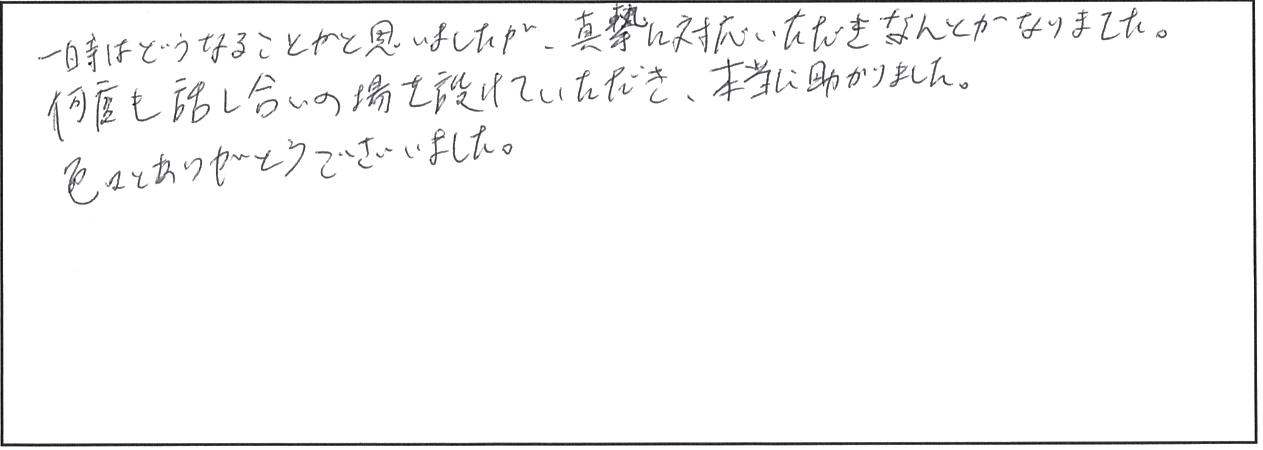 一時はどうなることかと思いましたが、真摯に対応いただきなんとかなりました。
何度も話し合いの場を設けていただき、本当に助かりました。
色々とありがとうございました。